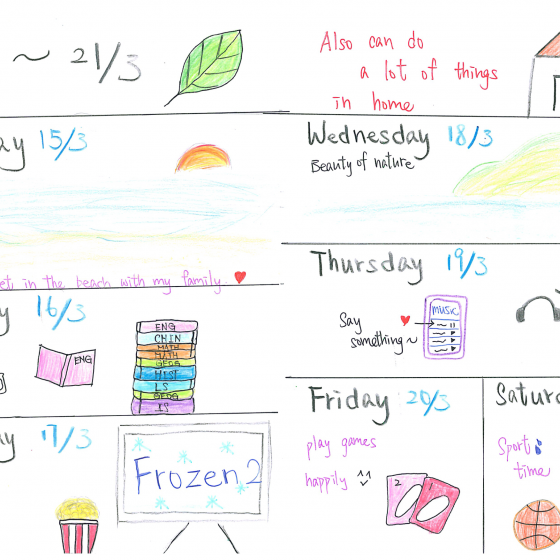 ~ 21/3
Also can do
a lot of things
in home
15/3
in the beach with my family
16/3
ENG
ENG
CHIN
MATH
MATH
GEOG
HIST
LS
GEOG
LS
17/3
Frozen 2
Wednesday 18/3
Beauty of nature
Thursday 19/3
Say
something~
MUSIC
Friday 20/3
play games
happily ^^
2
Sport
time